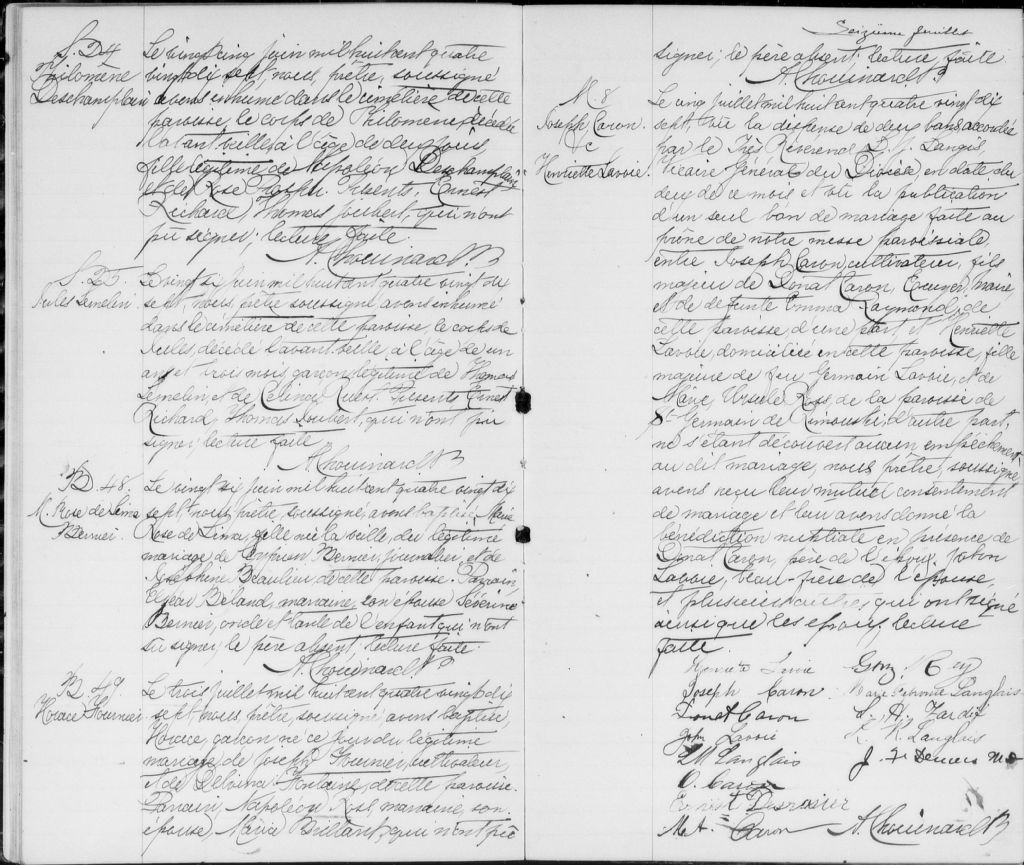 S. 24
Philomène
Deschamplain
Le vingt cinq juin mil huit cent quatre
vingt dix sept, nous, prêtre, soussigné
avons inhumé dans le cimetière de cette
paroisse, le corps de Philomène, décédée
l'avant veille, à l'âge de deux
fille légitime de Napoléon Deschamplain
et de Rose Présents Ernest
Richard, Thomas Joubert, qui n'ont
pu signer; lecture faite.
A. Chouinard Ptr
S. 25.
Jules Lemelin
Le vingt six juin mil huit cent quatre vingt dix
sept, nous, prêtre soussigné avons inhumé
dans le cimetière de cette paroisse, le corps de
Jules, décédé l'avant veille, à l'âge de un
an et trois mois, garçon légitime de Thomas
Lemelin et de Célina Présents Ernest
Richard, Thomas Joubert, qui n'ont pu
signer, lecture faite
A. Chouinard Ptr
B. 48.
M. Rose de Lima
Bernier.
Le vingt six juin mil huit cent quatre vingt dix
sept, nous, prêtre, soussigné, avons baptisé, Marie
Rose de Lima, fille née la veille, du légitime
mariage de Cyprien Bernier, journalier, et de
Joséphine Beaulieu de cette paroisse. Parrain,
Elzéar Béland, marraine, son épouse Séverine
Bernier, oncle et tante de l'enfant qui n'ont
su signer, le père absent, lecture faite.
A. Chouinard Ptr
B. 49
Horace Fournier
Le trois juillet mil huit cent quatre vingt dix
sept, nous, prêtre, soussigné avons baptisé,
Horace, garçon né ce jour du légitime
mariage de Joseph Fournier, cultivateur,
et de Delvina Fontaine, de cette paroisse.
Parrain, Napoléon Ross, marraine, son
épouse Marie Brillant, qui n'ont pu
Seizième feuillet
signer; le père absent. lecture faite.
A. Chouinard Ptr
M 8
Joseph Caron
&
Henriette Lavoie.
Le cinq juillet mil huit cent quatre vingt dix
sept, vu la dispense de deux bans accordée
par le Très Révérend Langis
Vicaire Général du Diocèse en date du
deux de ce mois et vu la publication
d'un seul ban de mariage faite au
prône de notre messe paroissiale,
entre Joseph Caron, cultivateur, fils
majeur de Donat Caron, Ecuier, maire,
et de défunte Emma Raymond, de
cette paroisse, d'une part et Henriette
Lavoie, domiciliée en cette paroisse, fille
majeure de feu Germain Lavoie, et de
Marie Ursule Ross, de la paroisse de
St Germain de Rimouski, d'autre part,
ne s'étant découvert aucun empêchement
au dit mariage, nous, prêtre, soussigné,
avons reçu leur mutuel consentement
de mariage et leur avons donné la
bénédiction nuptiale en présence de
Donat Caron, père de l'époux, John
Lavoie, beau-frère de l'épouse,
et plusieurs autres qui ont signé
ainsi que les époux, lecture
faite.
Henriette Lavoie
Joseph Caron Marie Langlois
Donat Caron L. H. Tardif
John Lavoie Langlois
Langlais J. F. Demers M.D
O. Caron
Ernest Desrosier
M. A. Caron A. Chouinard Ptr